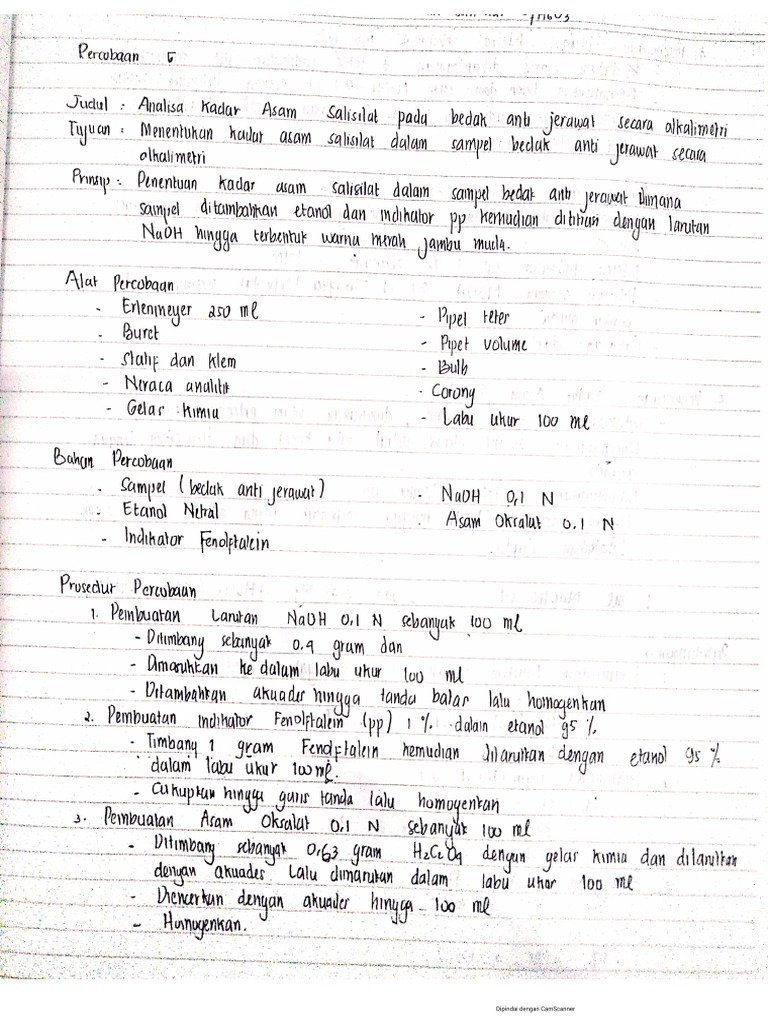 Percobaan 5
Judul : Analisa Kadar Asam Salisilat pada bedak anti jerawat secara alkalimetri
Tujuan : Menentukan kadar asam salisilat dalam sampel bedak anti jerawat secara
alkalimetri
Prinsip : Penentuan kadar asam salisilat dalam sampel bedak anti jerawat dimana
sampel ditambahkan etanol dan indikator pp kemudian dititrasi dengan larutan
NaOH hingga terbentuk warna merah jambu muda.
Alat Percobaan
- Erlenmeyer 250 ml
- Buret
- Statif dan klem
- Neraca analitik
- Gelas kimia
- Pipet tetes
- Pipet volume
- Bulb
- Corong
- Labu ukur 100 ml
Bahan Percobaan
- Sampel (bedak anti jerawat)
- Etanol Netral
- Indikator Fenolftalein
- NaOH 0,1 N
- Asam Oksalat 0.1 N
Prosedur Percobaan
1. Pembuatan Larutan NaOH 0,1 N sebanyak 100 ml
- Ditimbang sebanyak 0.4 gram dan
- Dimasukkan ke dalam labu ukur 100 ml
- Ditambahkan akuades hingga tanda batas lalu homogenkan
2. Pembuatan Indikator Fenolftalein (pp) 1 % dalam etanol 95 %
- Timbang 1 gram Fenolftalein kemudian dilarutkan dengan etanol 95 %
dalam labu ukur 100 ml.
- Cukupkan hingga garis tanda lalu homogenkan
3. Pembuatan Asam Oksalat 0.1 N sebanyak 100 ml
- Ditimbang sebanyak 0,63 gram H2C2O4 dengan gelas kimia dan dilarutkan
dengan akuades lalu dimasukan dalam labu ukur 100 ml
- Diencerkan dengan akuades hingga 100 ml
- Homogenkan.
Dipindai dengan CamScanner